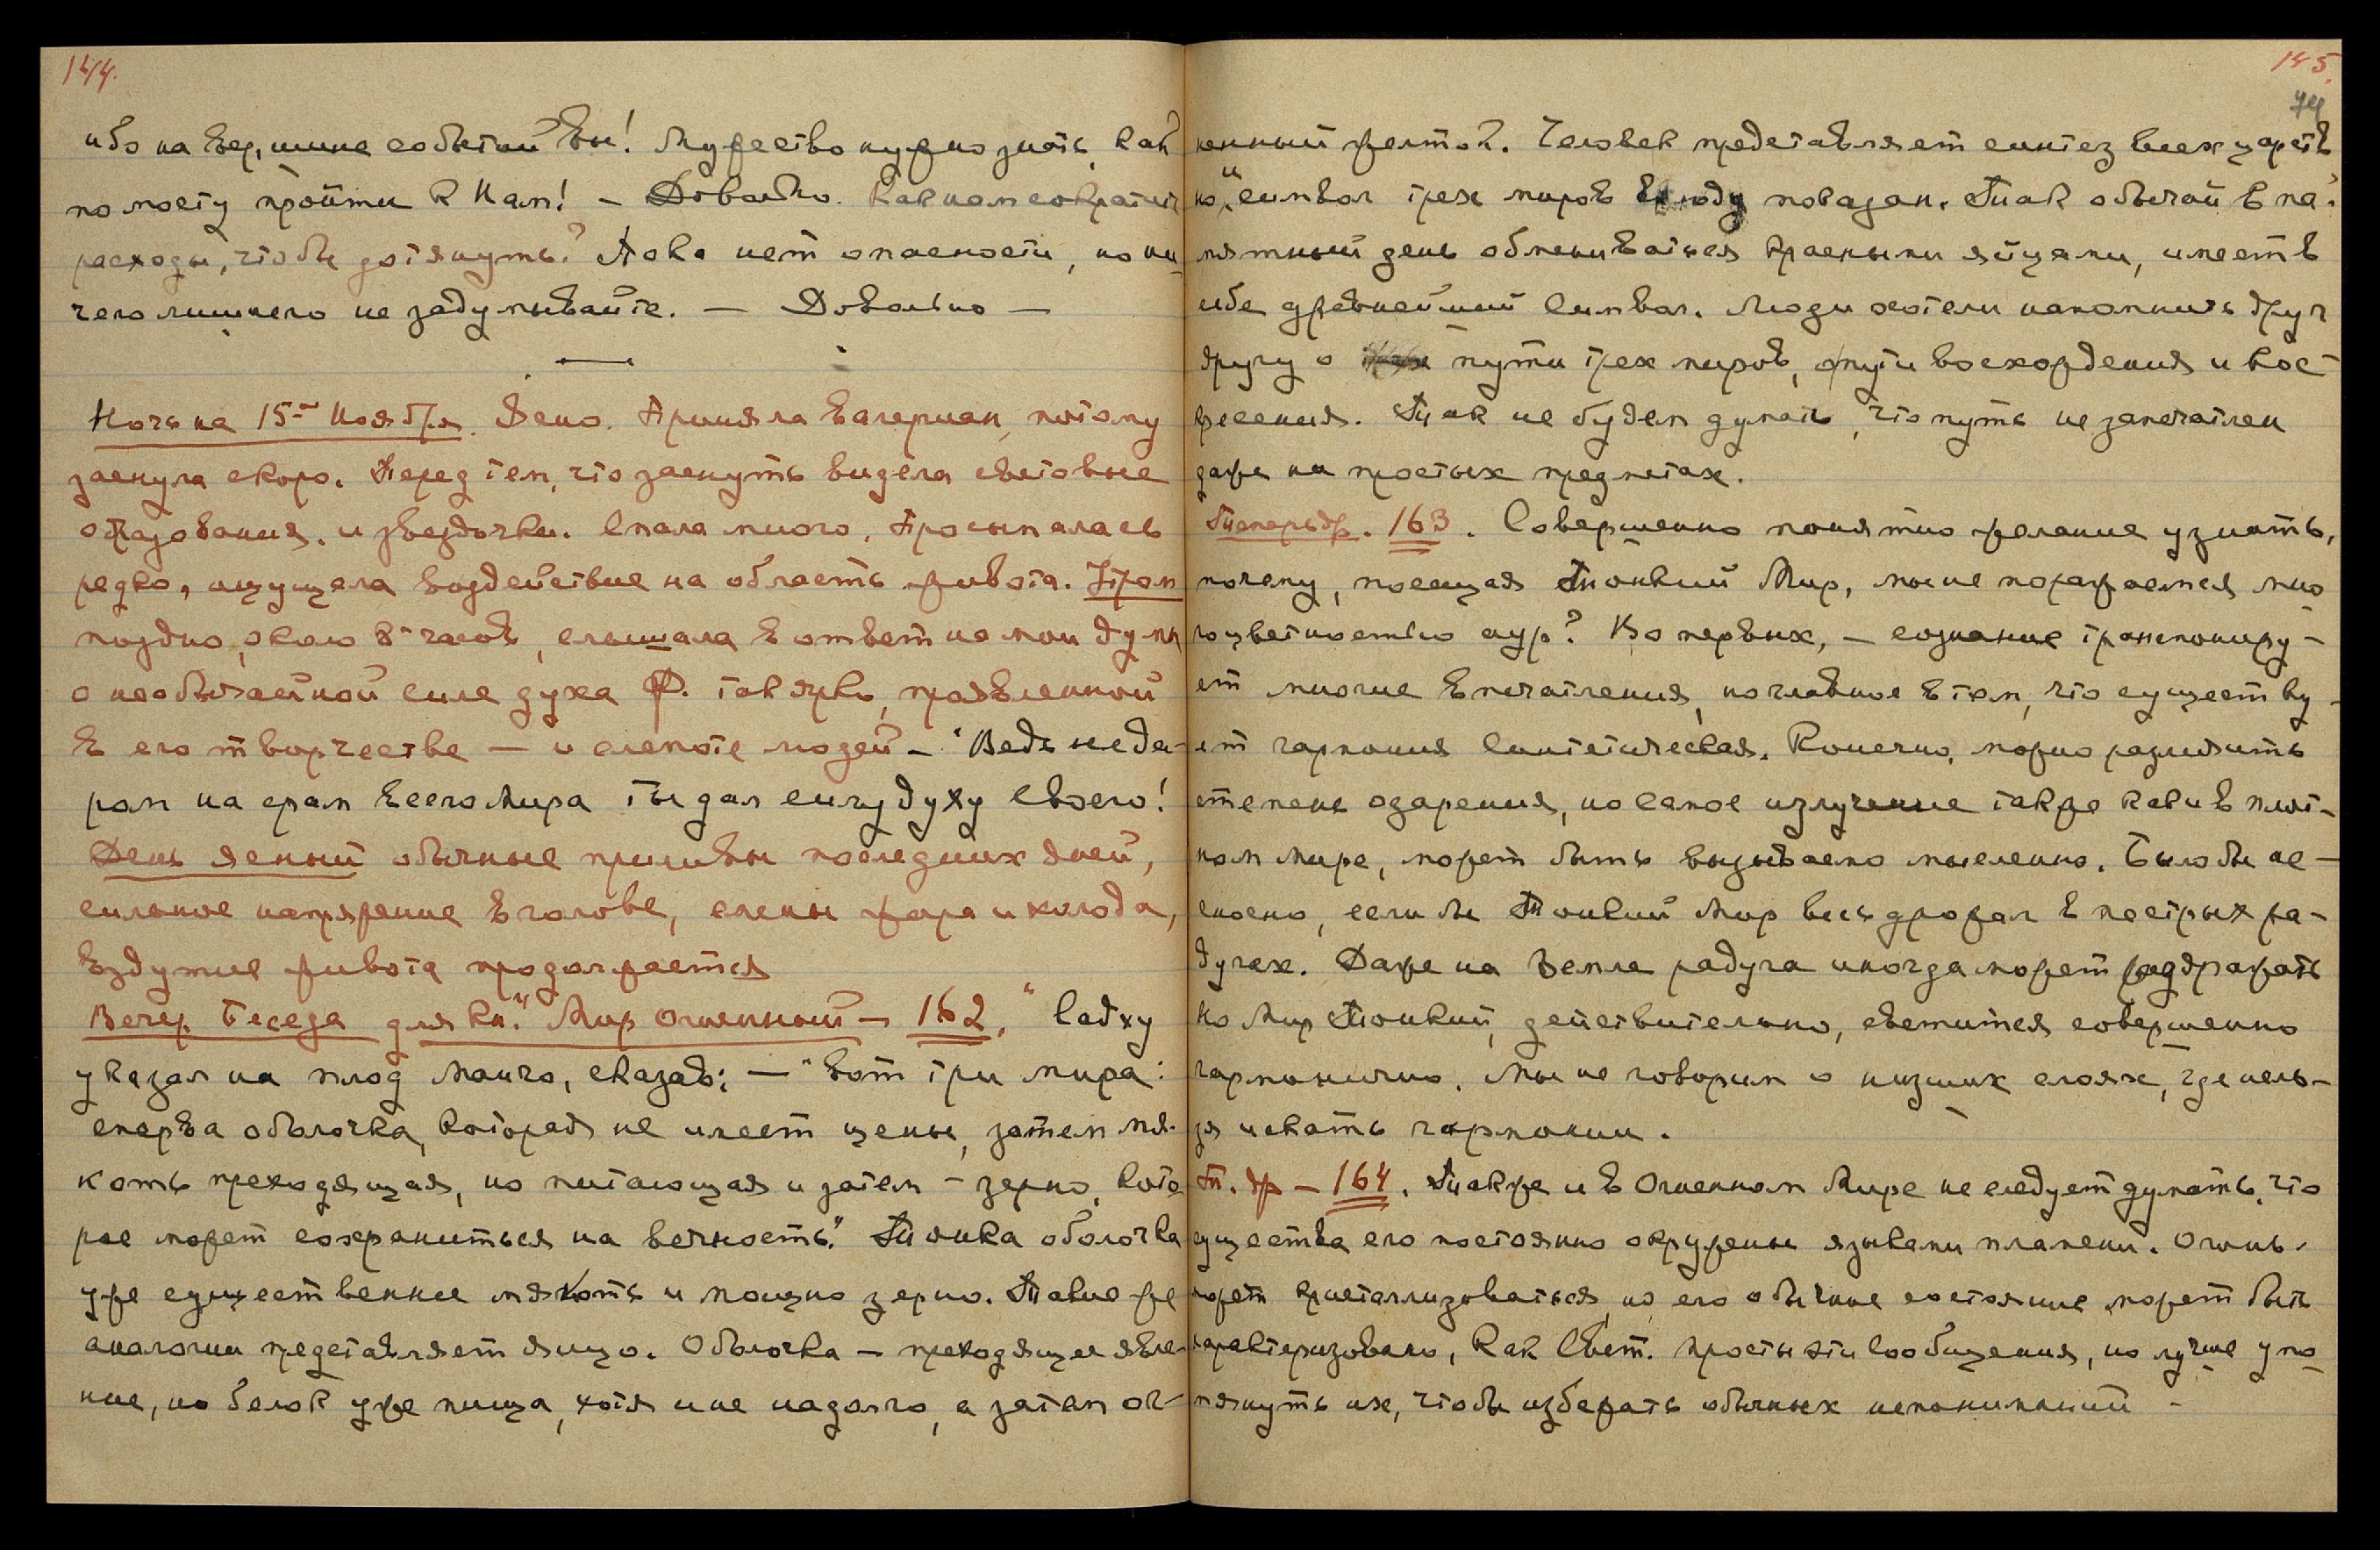 144.
ибо на вершине событий Вы! Мужество нужно знать, как
по мосту пройти к Нам! – Довольно. Как нам сократить
расходы, чтобы дотянуть? Пока нет опасности, но ни-
чего лишнего не задумывайте. — Довольно —
Ночь на 15-ое Ноября. Ясно. Приняла валериан, потому
заснула скоро. Перед тем, что заснуть видела световые
образования и звездочки. Спала много. Просыпалась
редко, ощущала воздействие на область живота. Утром
поздно, около 8-и часов, слышала в ответ на мои думы
о необычайной силе духа Ф. так ярко проявленной
в его творчестве — и слепоте людей – "Ведь неда-
ром на срам всего Мира ты дал силу духу Своего!
День ясный обычные приливы последних дней,
сильное напряжение в голове, смены жара и холода,
вздутие живота продолжается
Вечер. Беседа для кн. "Мир Огненный – 162." Садху
указал на плод манго, сказав: — "вот три мира:
сперва оболочка, которая не имеет цены, затем мя-
коть преходящая, но питающая и затем – зерно, кото
рое может сохраниться на вечность". Тонка оболочка
уже существеннее мякоть и мощно зерно. Такие же
аналогии представляет яйцо. Оболочка – преходящее явле-
ние, но белок уже пища, хотя и не надолго, а затем ог-
145.
74
ненный желток. Человек представляет синтез всех царств
но и символ трех миров всюду показан. Так обычай в па-
мятный день обмениваться красными яйцами, имеет в
себе древнейший символ. Люди хотели напомнить друг
другу о пути трех миров, о пути восхождения и вос-
кресения. Так не будем думать, что путь не запечатлен
даже на простых предметах.
Тетрадь др. 163. Совершенно понятно желание узнать,
почему, посещая Тонкий Мир, мы не поражаемся мно
гоцветностью аур? Во первых, – сознание транспониру-
ет многие впечатления, но главное в том, что существу-
ет гармония Синтетическая. Конечно, можно различить
степень озарения, но самое излучение также как и в плот-
ном мире, может быть вызываемо мысленно. Было бы не-
сносно, если бы Тонкий Мир весь дрожал в пестрых ра-
дугах. Даже на Земле радуга иногда может раздражать
Но Мир Тонкий, действительно, светится совершенно
гармонично. Мы не говорим о низших слоях, где нель-
зя искать гармонии.
Т. др – 164. Также и в Огненном Мире не следует думать, что
существа его постоянно окружены языками пламени. Огонь
может кристаллизоваться, но его обычное состояние может быть
характеризовано, как Свет. Просты эти сообщения, но лучше упо
мянуть их, чтобы избежать обычных непониманий –